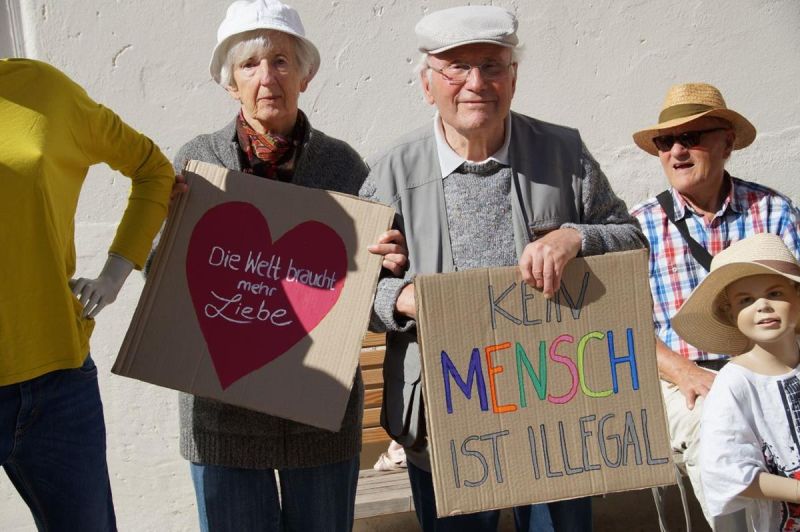 Die Welt braucht
mehr
Liebe
KEIN
MENSCH
IST ILLEGAL